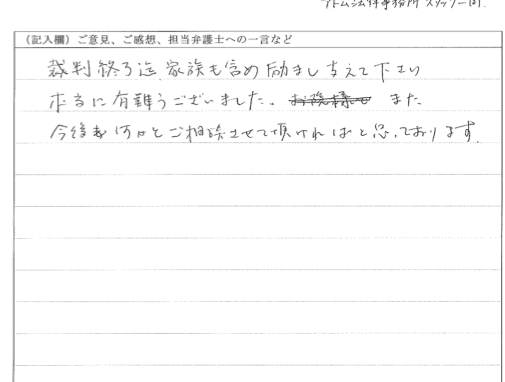 アトム法律事務所 スタッフ一同.
（記入欄）ご意見、ご感想、担当弁護士への一言など
裁判終了迄、家族も含め励まし支えて下さい
本当に有難うございました。また
今後も何かとご相談させて頂ければと思っております。